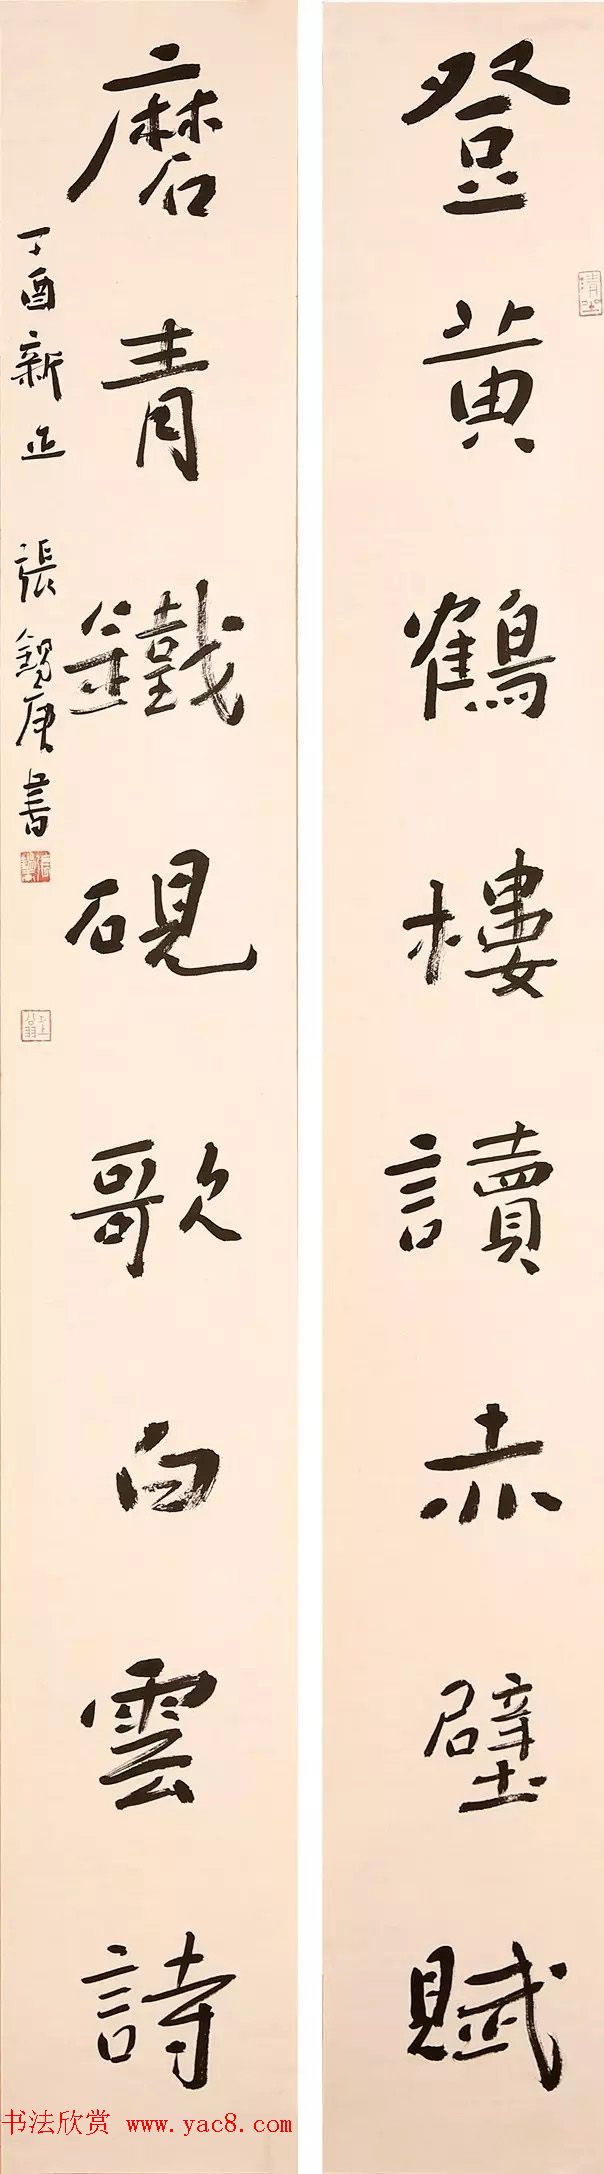 登黄鶴樓讀赤壁賦
磨青鐵硯歌白雲詩
丁酉新正 張錫庚書
书法欣赏 www.yac8.com